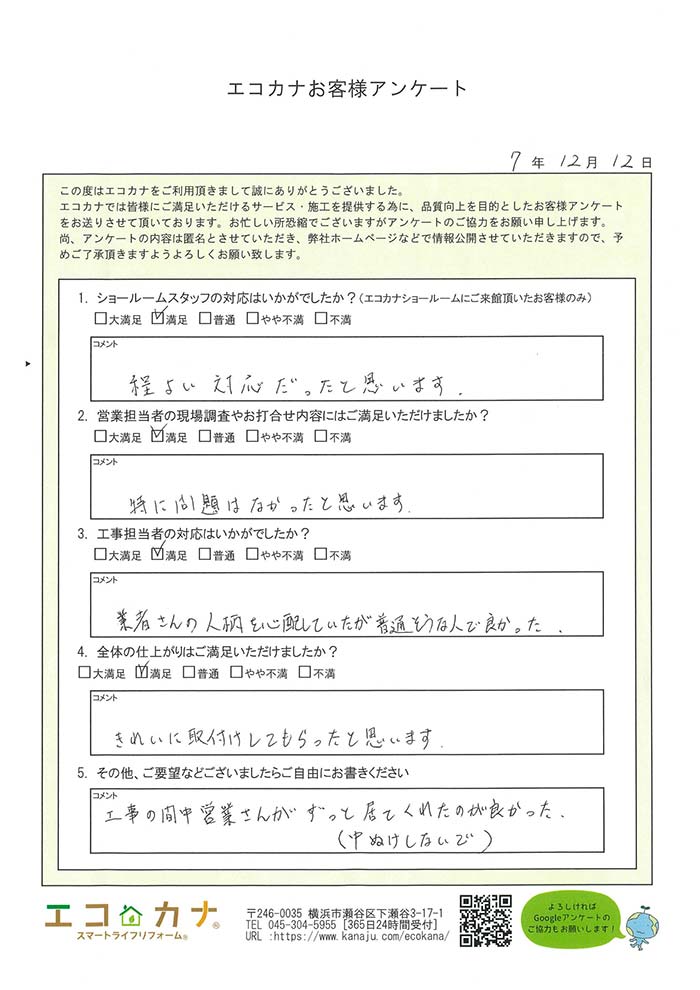 エコカナお客様アンケート
7年 12月 12日
この度はエコカナをご利用頂きまして誠にありがとうございました。
エコカナでは皆様にご満足いただけるサービス・施工を提供する為に、品質向上を目的としたお客様アンケート
をお送りさせて頂いております。お忙しい所恐縮でございますがアンケートのご協力をお願い申し上げます。
尚、アンケートの内容は匿名とさせていただき、弊社ホームページなどで情報公開させていただきますので、予
めご了承頂きますようよろしくお願い致します。
1. ショールームスタッフの対応はいかがでしたか？（エコカナショールームにご来館頂いたお客様のみ）
□大満足 ☑満足 □普通 □やや不満 □不満
コメント
程よい対応だったと思います.
2. 営業担当者の現場調査やお打合せ内容にはご満足いただけましたか？
□大満足 ☑満足 □普通 □やや不満 □不満
コメント
特に問題はなかったと思います.
3. 工事担当者の対応はいかがでしたか？
□大満足 ☑満足 □普通 □やや不満 □不満
コメント
業者さんの人柄を心配していたが普通そうな人で良かった.
4. 全体の仕上がりはご満足いただけましたか？
□大満足 ☑満足 □普通 □やや不満 □不満
コメント
きれいに取付けしてもらったと思います.
5. その他、ご要望などございましたらご自由にお書きください
コメント
工事の間中営業さんがずっと居てくれたのが良かった.
(中ぬけしないで)
エコカナ®
スマートライフリフォーム®
〒246-0035 横浜市瀬谷区下瀬谷3-17-1
TEL 045-304-5955 [365日24時間受付]
URL :https://www.kanaju.com/ecokana/
よろしければ
Googleアンケートの
ご協力もお願いします！